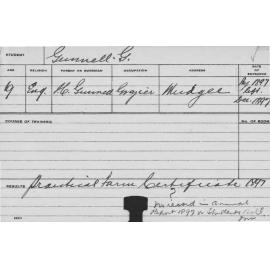 STUDENT Gunnell. G.
AGE RELIGION PARENT OR GUARDIAN OCCUPATION ADDRESS DATE OF ENTRANCE
19 Eng. H. Gunnell Grazier Mudgee Aug 1897
Dec. 1897
COURSE OF TRAINING. NO. OF ROOM
RESULTS Practical Farm Certificate 1897
?
in Annual
Report 1897 or Students Roll